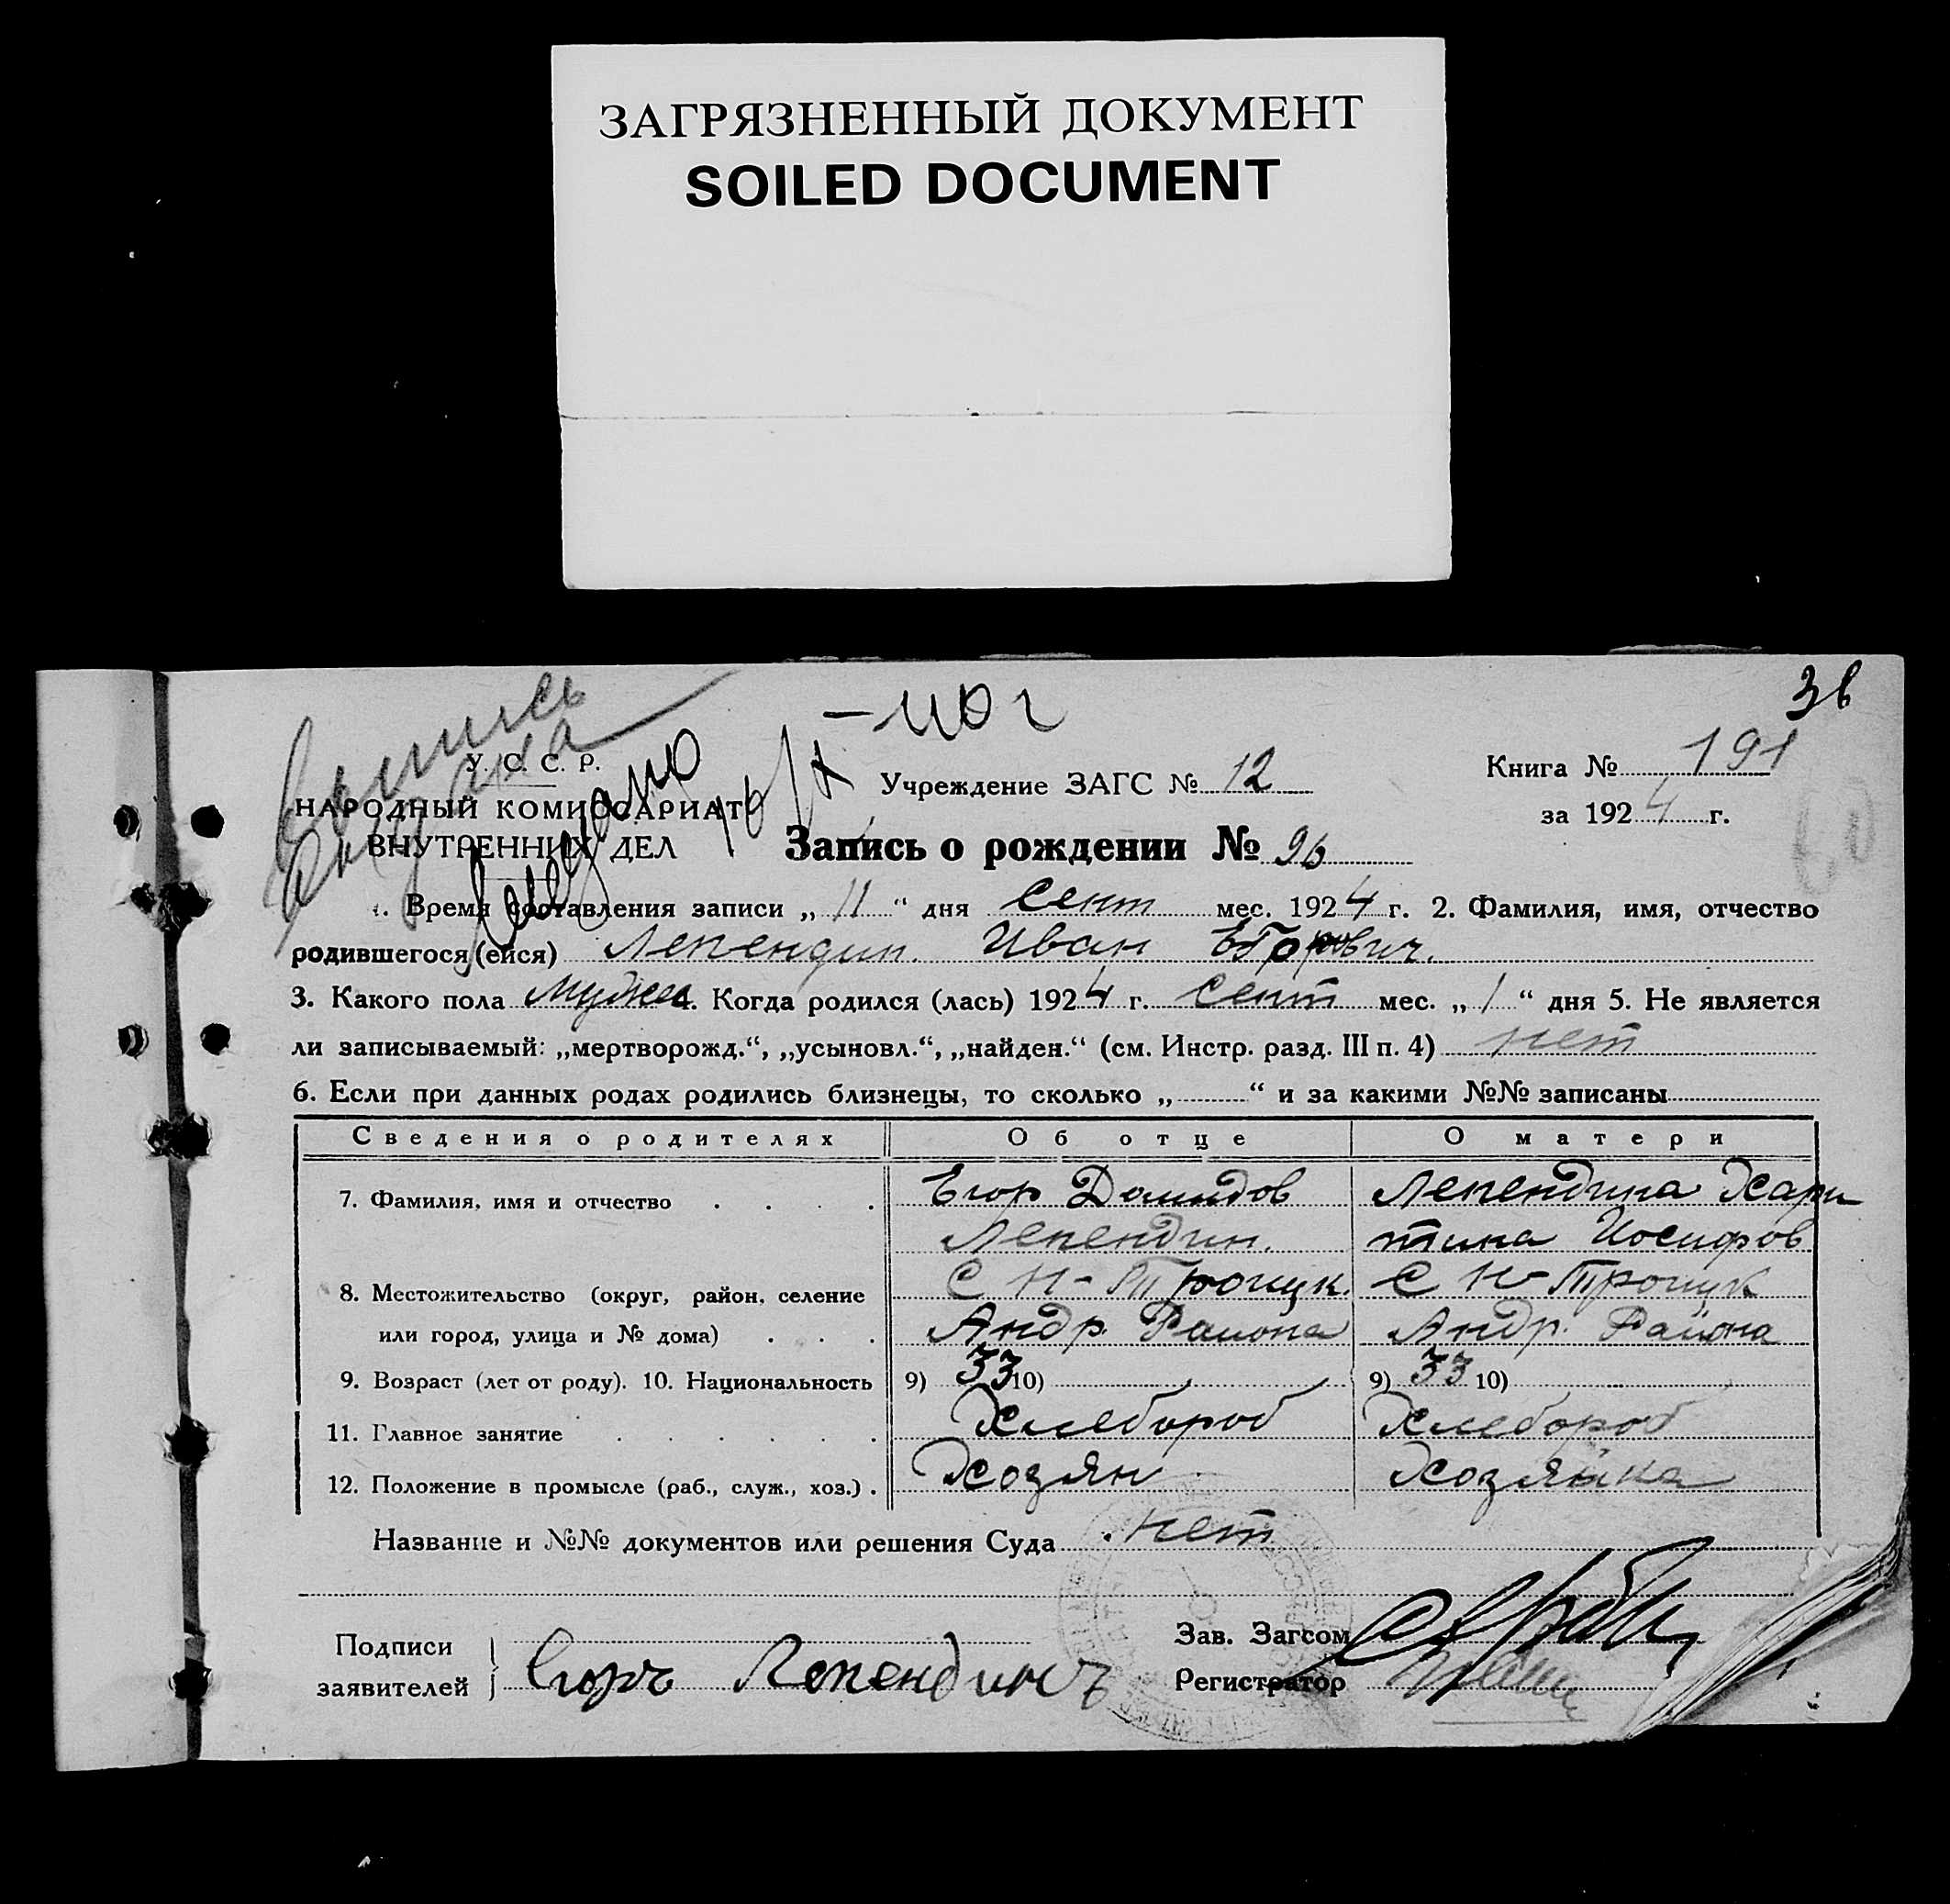 ЗАГРЯЗНЕННЫЙ ДОКУМЕНТ
SOILED DOCUMENT
36
У. С. С. Р.
НАРОДНЫЙ КОМИССАРИАТ
ВНУТРЕННИХ ДЕЛ
Учреждение ЗАГС № 12
Книга № 191
за 1924 г.
Запись о рождении № 96
1. Время составления записи „ 11 “ дня сент мес. 1924 г. 2. Фамилия, имя, отчество
родившегося (ейся) Лепендин. Иван Егорович.
3. Какого пола Мужск 4. Когда родился (лась) 1924 г. сент мес. „ 1 “ дня 5. Не является
ли записываемый: „мертворожд.“, „усыновл.“, „найден.“ (см. Инстр. разд. III п. 4) нет
6. Если при данных родах родились близнецы, то сколько „ “ и за какими №№ записаны
Сведения о родителях Об отце О матери
7. Фамилия, имя и отчество Егор Демидов Лепендина Хари
Лепендин. тина Иосифов
8. Местожительство (округ, район, селение С Н-Троицк. С Н-Троицк
или город, улица и № дома) Андр. Района Андр. Района
9. Возраст (лет от роду). 10. Национальность 9) 33 10) 9) 33 10)
11. Главное занятие Хлебороб Хлебороб
12. Положение в промысле (раб., служ., хоз.) Хозяин Хозяйка
Название и №№ документов или решения Суда нет
Подписи
заявителей Егоръ Лепендинъ
Зав. Загсом
Регистратор